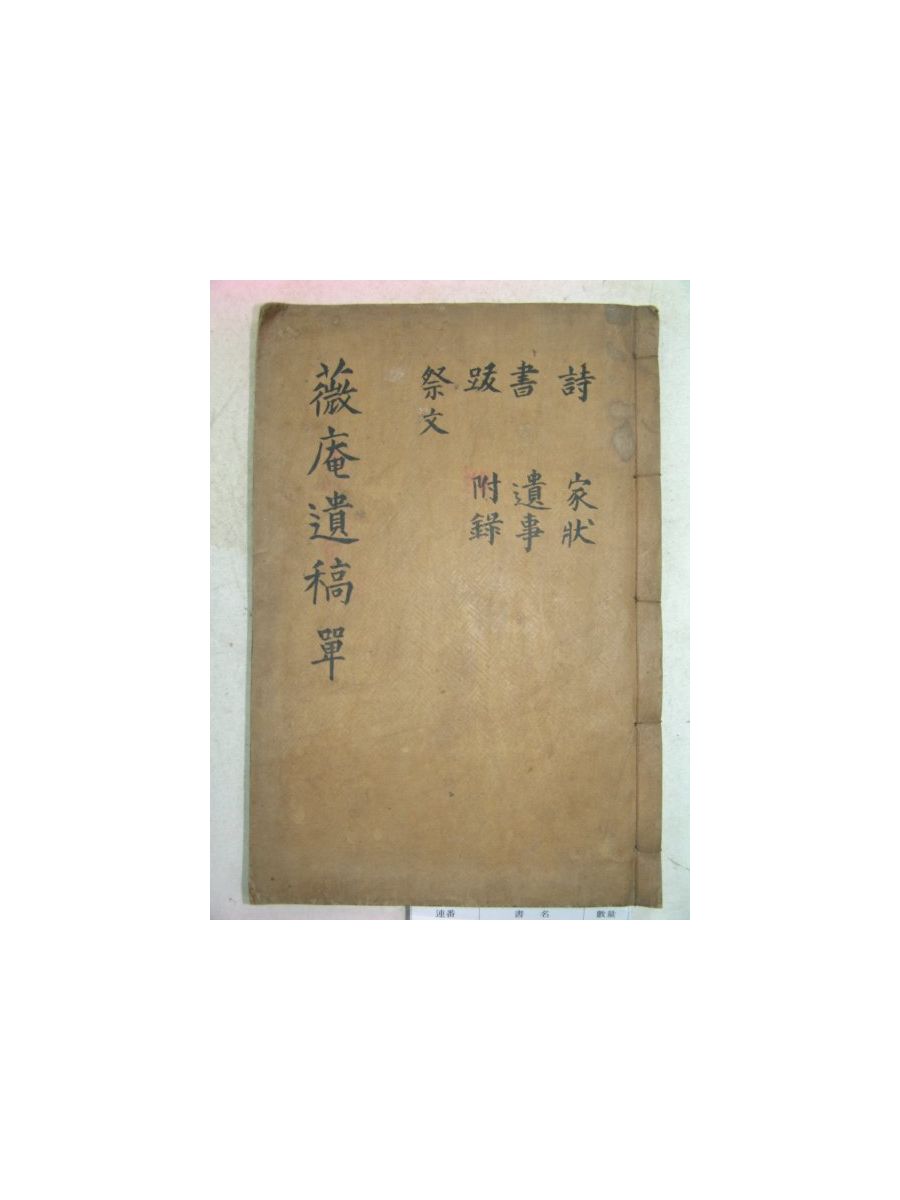 詩 家狀
書 遺事
跋 附錄
祭文
薇庵遺稿 單
連番 書名 數量